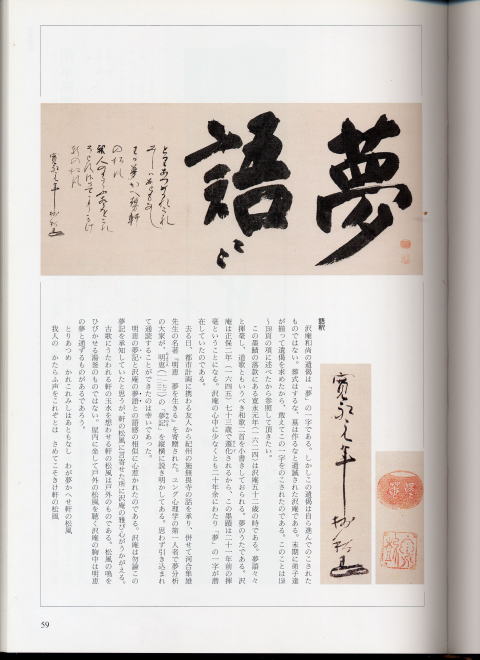 夢
語
語釈
沢庵和尚の遺偈は「夢」の一字である。しかしこの遺偈は自ら進んでのこされた
ものではない。葬式はするな、墓は作るなと遺誡された沢庵である。末期に弟子達
が揃って遺偈を求めたから、敢えてこの一字をのこされたのである。このことは
頁の項に述べたから参照して頂きたい。
この墨蹟の落款にある寛永元年（一六二四）は沢庵五十二歳の時である。夢語々々
と揮毫し、道歌ともいうべき和歌二首を小書きしておられる。夢のうたである。沢
庵は正保二年（一六四五）七十三歳で遷化されるから、この墨蹟は二十一年前の揮
毫ということになる。沢庵の心中に少なくとも二十年余にわたり「夢」の一字が潜
在していたのである。
去る日、都市計画に携わる友人から紀州の施無畏寺の話を承り、併せて河合隼雄
先生の名著『明恵　夢を生きる』を寄贈された。ユング心理学の第一人者で夢分析
の大家が、明恵の『夢記』を縦横に説き明かしてある。思わず引き込まれ
て通読することができたのは幸いであった。
明恵の夢記と沢庵の夢語との語感の相似に心惹かれたのである。沢庵は勿論この
夢記を承知していたと思うが、軒の松風に言寄せた所に沢庵の雅び心がうかがえる。
古歌にうたわれる軒の玉水を想わせる軒の松風は戸外のものである。松風の鳴を
ひびかせる湯釜のものではない。屋内に坐して戸外の松風を聴く沢庵の胸中は明恵
の夢と通ずるものがあるであろう。
とりあつめ　かれこれみしはあともなし　わが夢かへせ軒の松風
我人の　かたらふ声をこれぞとは　さめてこそきけ軒の松風
寛永元年
59